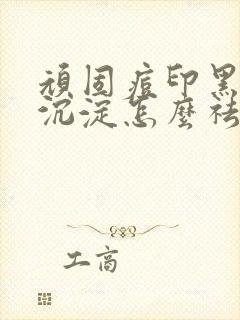 頑固痘印黑
沉淀怎麼祛
工商